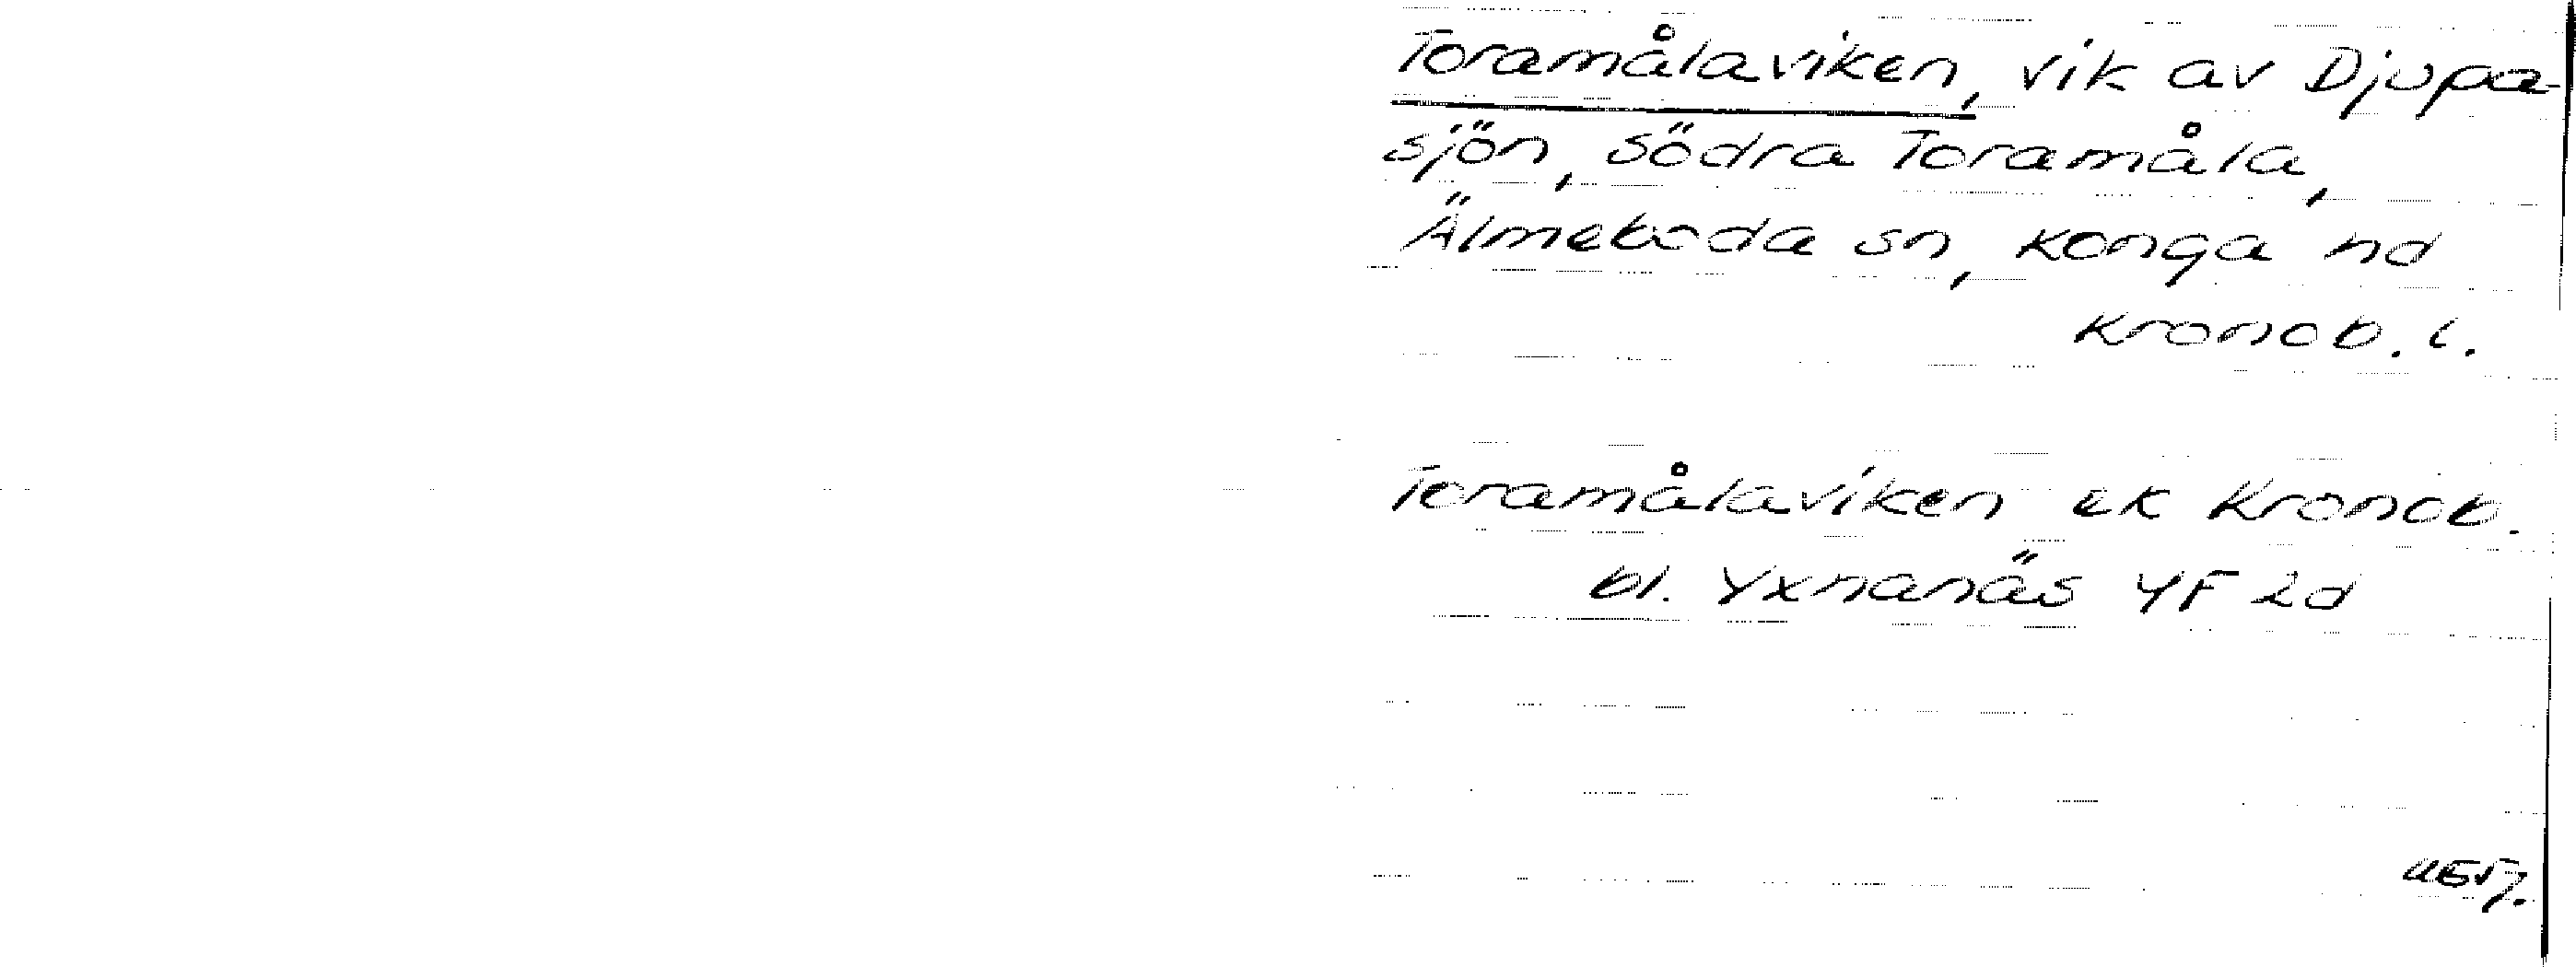 Toramålaviken, vik av Djupa-
sjön, Södra Toramåla,
Älmeboda sn, Konga hd
Kronob. l.
Toramålaviken ek Kronob.
bl. Yxnanäs 4F 2d